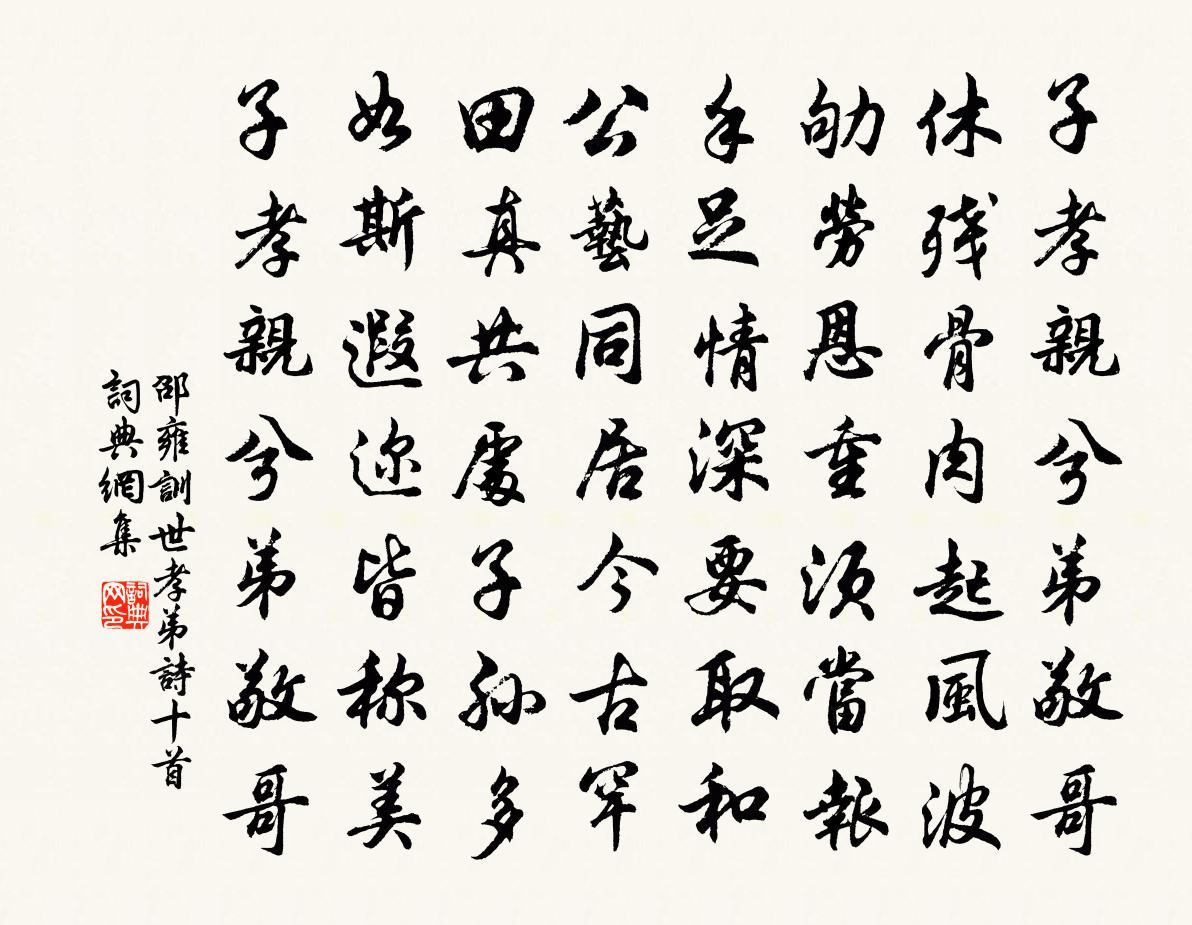 子孝親兮弟敬哥
休残骨肉起風波
劬勞恩重須當報
手足情深要取和
公藝同居今古罕
田真共處子孫多
如斯遐迩皆称美
子孝親兮弟敬哥
邵雍訓世孝弟詩十首
詞典網集
詞典网印